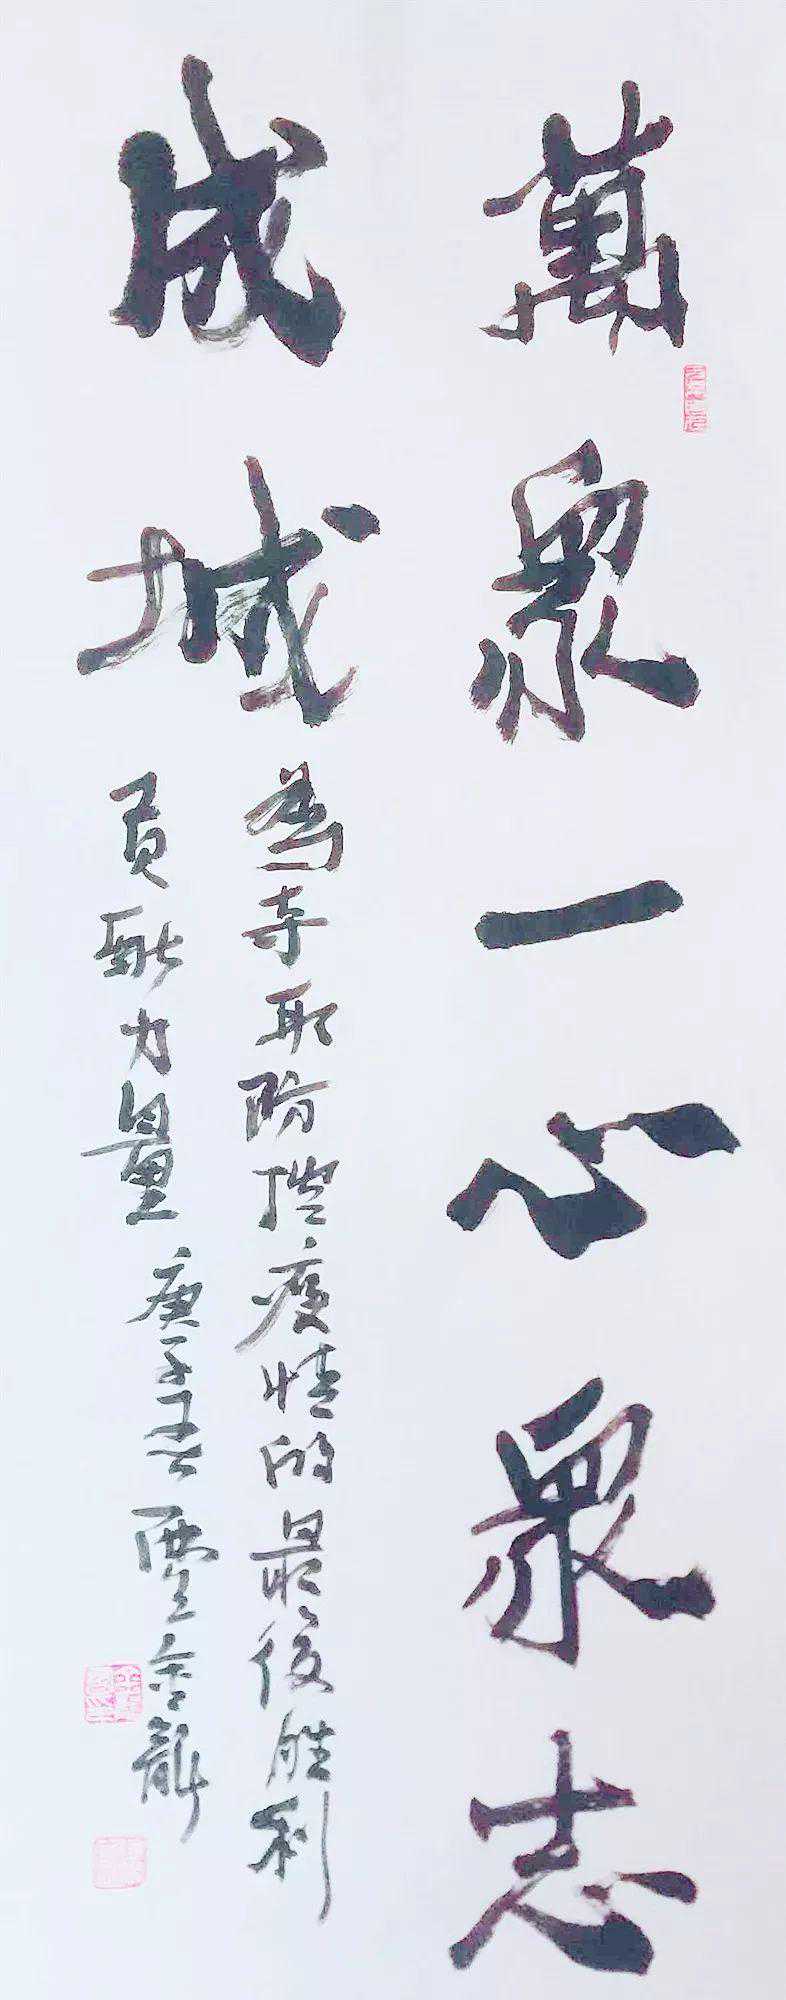 萬眾一心眾志
成城
為爭取防控疫情的最後勝利
貢獻力量 庚子春 賈金龍